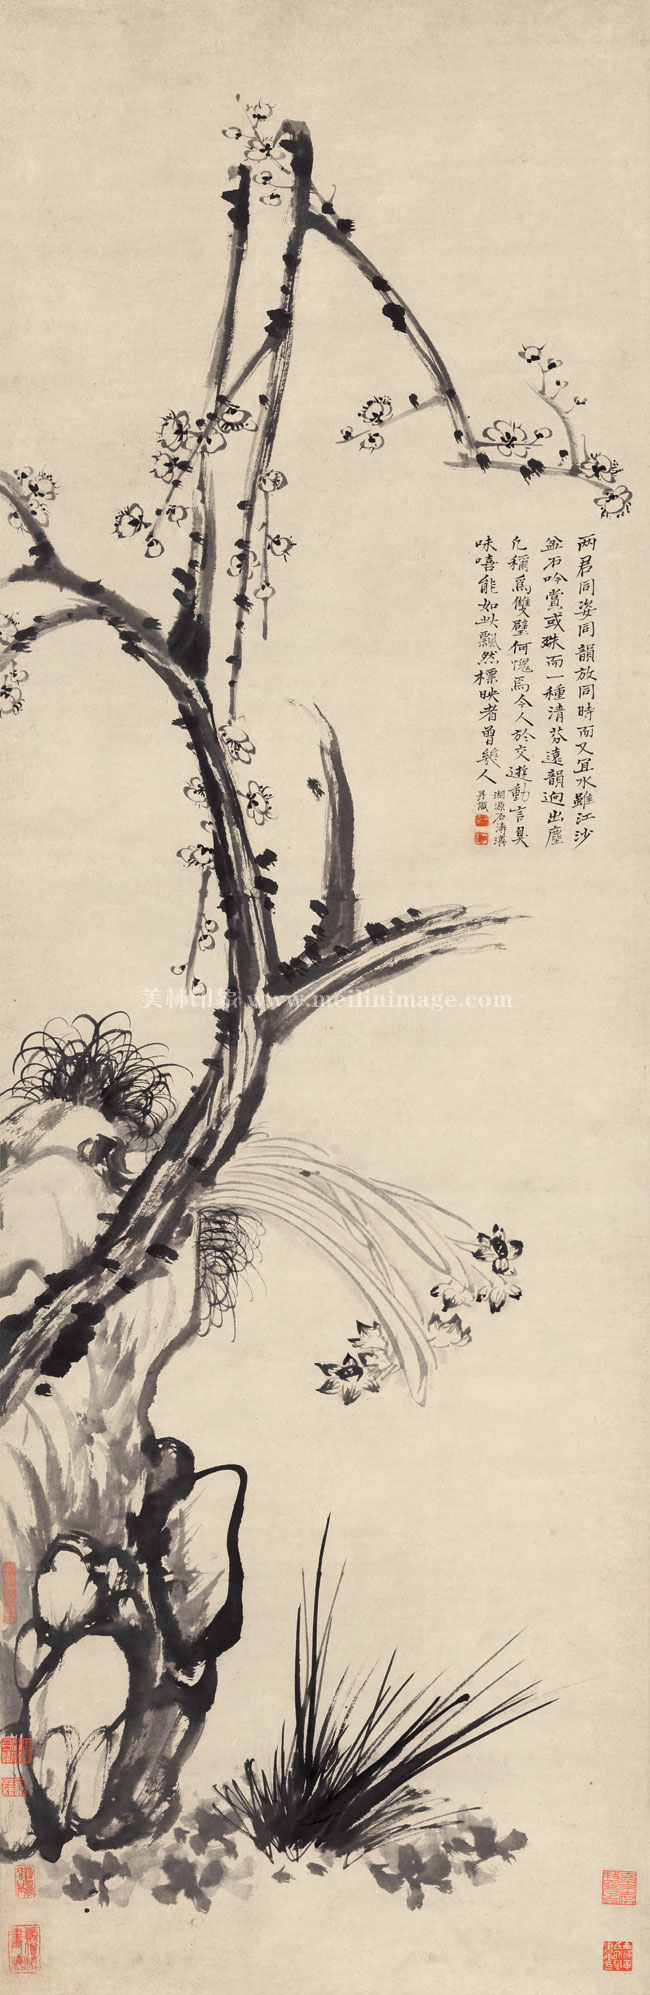 两君同姿同韻放同時而又宜水雖江沙
盆石吟賞或殊而一種清芬遠韻迥出塵
凡稱爲雙璧何愧焉今人於交遊動言臭
味嘻能如此飄然標映者曾幾人
湘源石濤濟
并識
美林印象 www.meilinimage.com